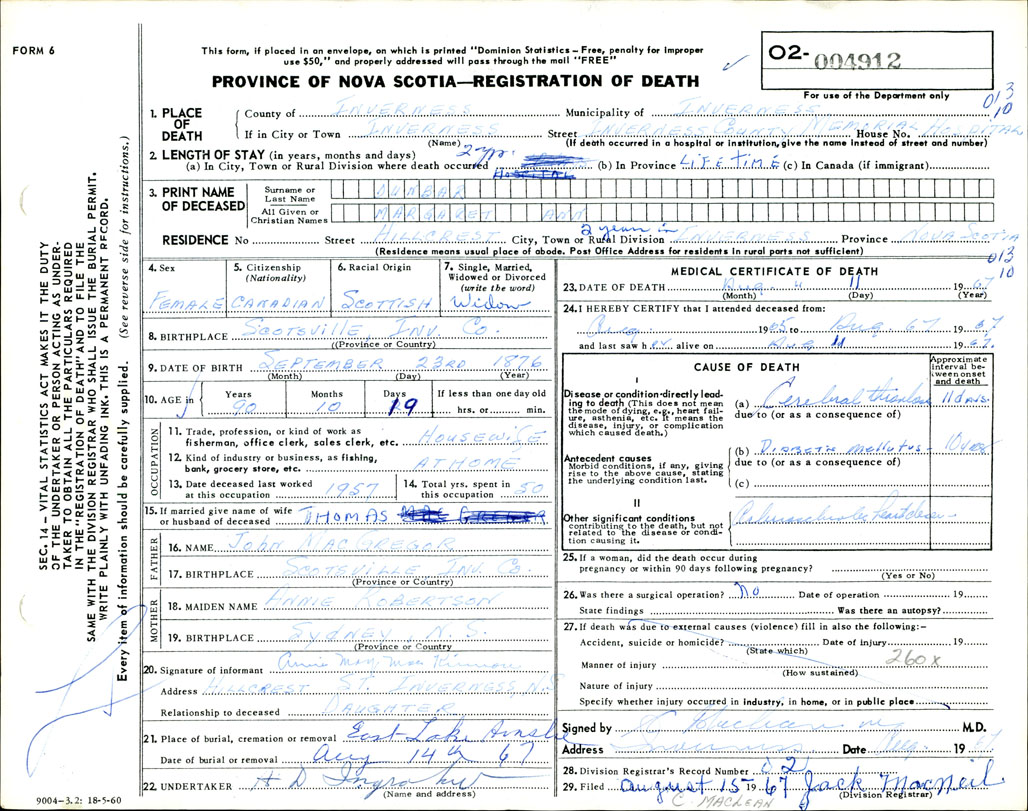 FORM 6
This form, if placed in an envelope, on which is printed "Dominion Statistics – Free, penalty for improper
use $50," and properly addressed will pass through the mail "FREE"
PROVINCE OF NOVA SCOTIA—REGISTRATION OF DEATH
02- 004912
For use of the Department only
013
10
1. PLACE OF DEATH
County of INVERNESS Municipality of INVERNESS
If in City or Town INVERNESS Street INVERNESS COUNTY MEMORIAL HOSPITAL House No.
(Name) (If death occurred in a hospital or institution, give the name instead of street and number)
2. LENGTH OF STAY (in years, months and days)
(a) In City, Town or Rural Division where death occurred 2 yr. HOSPITAL (b) In Province LIFE TIME (c) In Canada (if immigrant)
3. PRINT NAME OF DECEASED
Surname or Last Name DUNBAR
All Given or Christian Names MARGARET ANN
2 years in
RESIDENCE No Street HILLCREST City, Town or Rural Division INVERNESS Province NOVA SCOTIA
(Residence means usual place of abode. Post Office Address for residents in rural parts not sufficient)
013
10
4. Sex FEMALE
5. Citizenship (Nationality) CANADIAN
6. Racial Origin SCOTTISH
7. Single, Married, Widowed or Divorced (write the word) Widow
8. BIRTHPLACE SCOTSVILLE, INV. CO.
((Province or Country)
9. DATE OF BIRTH SEPTEMBER 23RD 1876
(Month) (Day) (Year)
10. AGE in Years 90 Months 10 Days 19 If less than one day old hrs. or min.
OCCUPATION
11. Trade, profession, or kind of work as fisherman, office clerk, sales clerk, etc. HOUSEWIFE
12. Kind of industry or business, as fishing, bank, grocery store, etc. AT HOME
13. Date deceased last worked at this occupation 1957
14. Total yrs. spent in this occupation 50
15. If married give name of wife or husband of deceased THOMAS
FATHER
16. NAME JOHN MACGREGOR
17. BIRTHPLACE SCOTSVILLE INV. CO.
(Province or Country)
MOTHER
18. MAIDEN NAME ANNIE ROBERTSON
19. BIRTHPLACE SYDNEY, N.S.
(Province or Country
20. Signature of informant Annie May MacKinnon
Address HILLCREST ST. INVERNESS, N.S.
Relationship to deceased DAUGHTER
21. Place of burial, cremation or removal East Lake Ainslie
Date of burial or removal Aug 14th 67
22. UNDERTAKER
(Name and address)
9004-3.2: 18-5-60
MEDICAL CERTIFICATE OF DEATH
23. DATE OF DEATH Aug. 11 1967
(Month) (Day) (Year)
24. I HEREBY CERTIFY that I attended deceased from:
Aug. 1965 to Aug 67 1967
and last saw her alive on Aug 11 1967.
CAUSE OF DEATH
Approximate interval between onset and death
I
Disease or condition directly leading to death (This does not mean the mode of dying, e.g., heart failure, asthenia, etc. It means the disease, injury, or complication which caused death.)
(a) Cerebral 11 days.
due to (or as a consequence of)
Antecedent causes
Morbid conditions, if any, giving rise to the above cause, stating the underlying condition last.
(b) DIABETES MELLITUS - 10 yrs
due to (or as a consequence of)
(c)
II
Other significant conditions contributing to the death, but not related to the disease or condition causing it.
25. If a woman, did the death occur during
pregnancy or within 90 days following pregnancy?
(Yes or No)
26. Was there a surgical operation? No Date of operation 19
State findings Was there an autopsy?
27. If death was due to external causes (violence) fill in also the following:–
Accident, suicide or homicide? Date of injury 19
(State which)
260X
Manner of injury
(How sustained)
Nature of injury
Specify whether injury occurred in industry, in home, or in public place
Signed by M.D.
Address Inverness Date Aug. 1967
28. Division Registrar's Record Number 2
29. Filed August 15 1967 Jack MacNeil
(Division Registrar)
C. MACLEAN
SEC. 14 – VITAL STATISTICS ACT MAKES IT THE DUTY
OF THE UNDERTAKER OR PERSON ACTING AS UNDER-
TAKER TO OBTAIN ALL THE PARTICULARS REQUIRED
IN THE "REGISTRATION OF DEATH" AND TO FILE THE
SAME WITH THE DIVISION REGISTRAR WHO SHALL ISSUE THE BURIAL PERMIT.
WRITE PLAINLY WITH UNFADING INK. THIS IS A PERMANENT RECORD.
Every item of information should be carefully supplied. (See reverse side for instructions.)